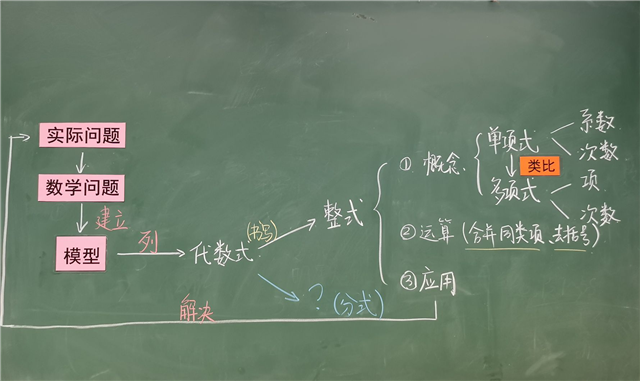 实际问题
数学问题
建立
模型
列
代数式
(书写)
整式
① 概念
单项式
系数
次数
类比
多项式
项
次数
② 运算 (合并同类项 去括号)
③ 应用
? (分式)
解决